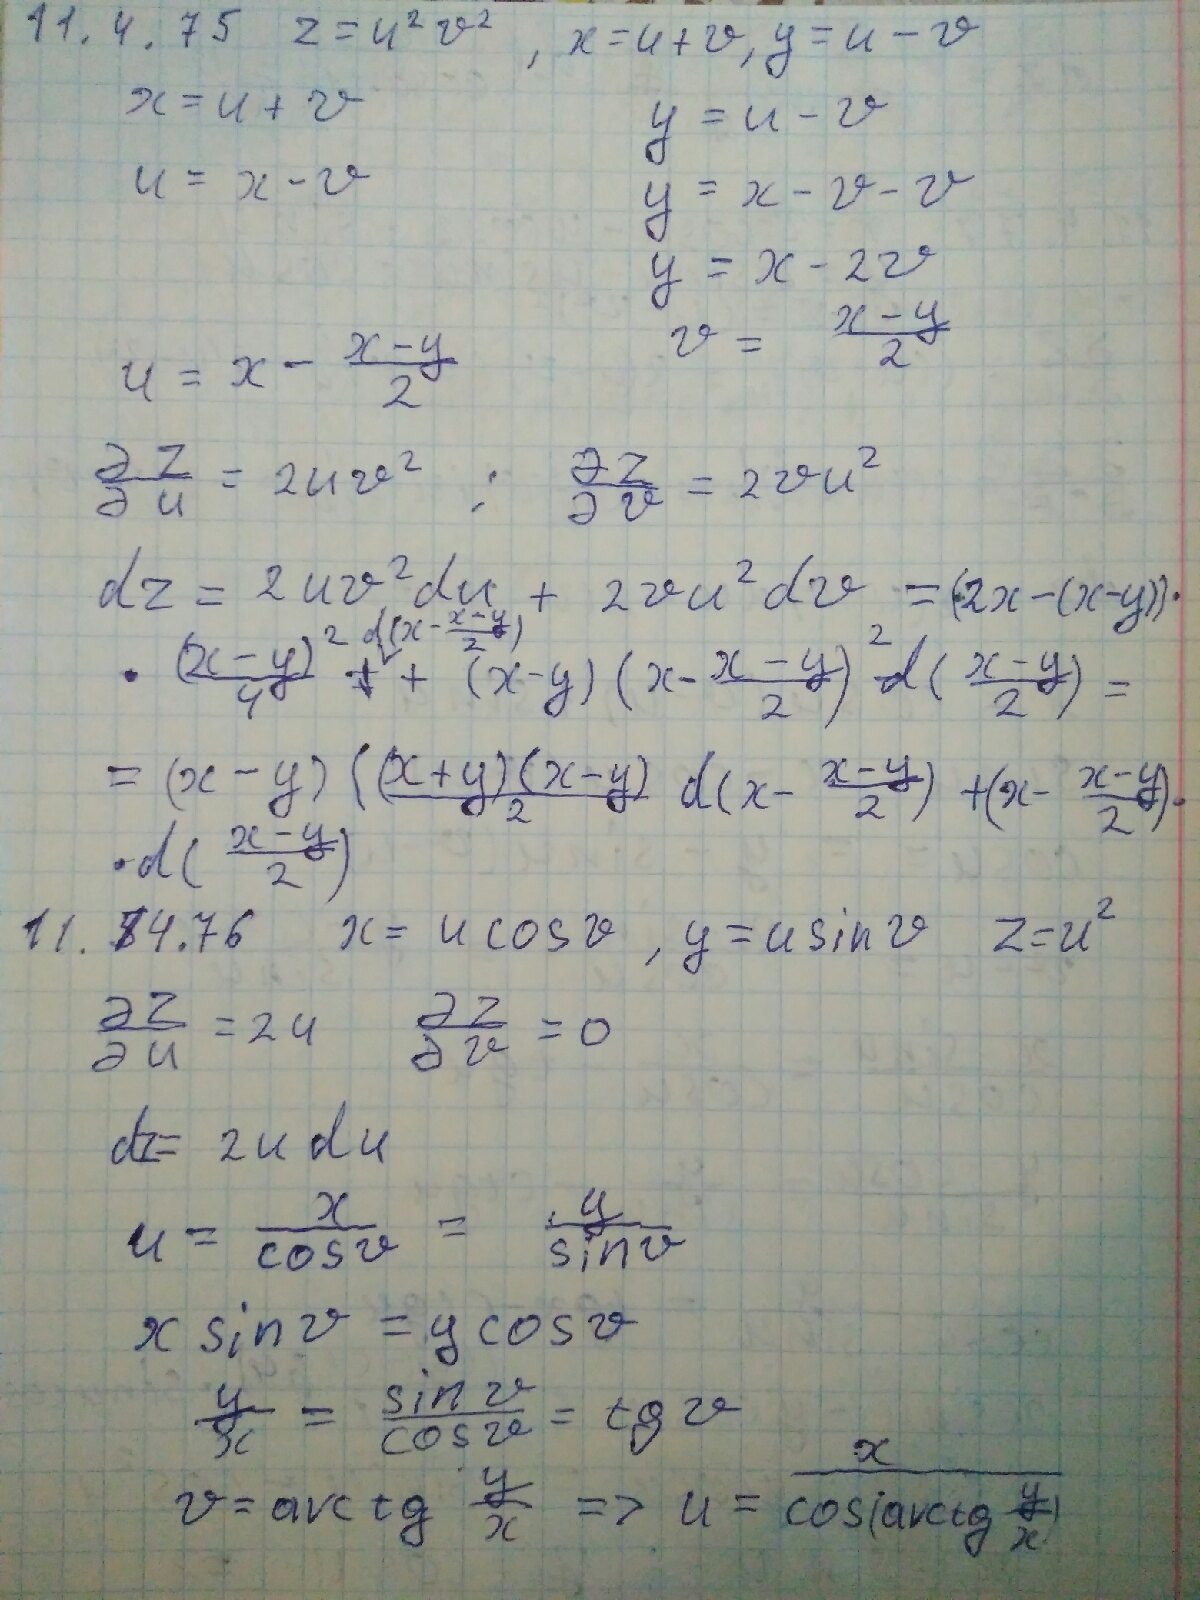 11.4.75 z = u² v² , x = u + v, y = u - v
x = u + v y = u - v
u = x - v y = x - v - v
y = x - 2v
v = (x - y)/2
u = x - (x - y)/2
∂z/∂u = 2uv² ; ∂z/∂v = 2vu²
dz = 2uv² du + 2vu² dv = (2x - (x - y)) ·
· (x - y)²/4 d(x - (x - y)/2) + (x - y)(x - (x - y)/2)² d((x - y)/2) =
= (x - y) ((x + y)(x - y)/2 d(x - (x - y)/2) + (x - (x - y)/2) ·
· d((x - y)/2)
11.4.76 x = u cos v , y = u sin v z = u²
∂z/∂u = 2u ∂z/∂v = 0
dz = 2u du
u = x/cos v = y/sin v
x sin v = y cos v
y/x = sin v/cos v = tg v
v = arctg y/x => u = x/cos(arctg y/x)